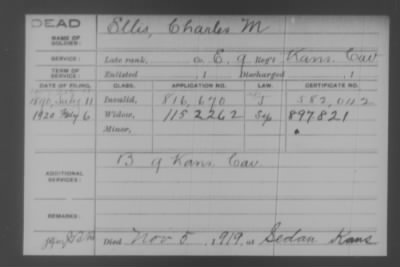 DEAD
NAME OF SOLDIER: Ellis, Charles M
SERVICE: Late rank, Co. E, 9 Reg't Kans. Cav
TERM OF SERVICE: Enlisted , 1 Discharged , 1
DATE OF FILING. CLASS. APPLICATION NO. LAW. CERTIFICATE NO.
1890, July 11 Invalid, 816,670 J 582,042
1920 Feby 6 Widow, 1152262 Sep 897821
Minor,
ADDITIONAL SERVICES: B 9 Kans. Cav
REMARKS:
Died Nov 5, 1919, at Sedan Kans